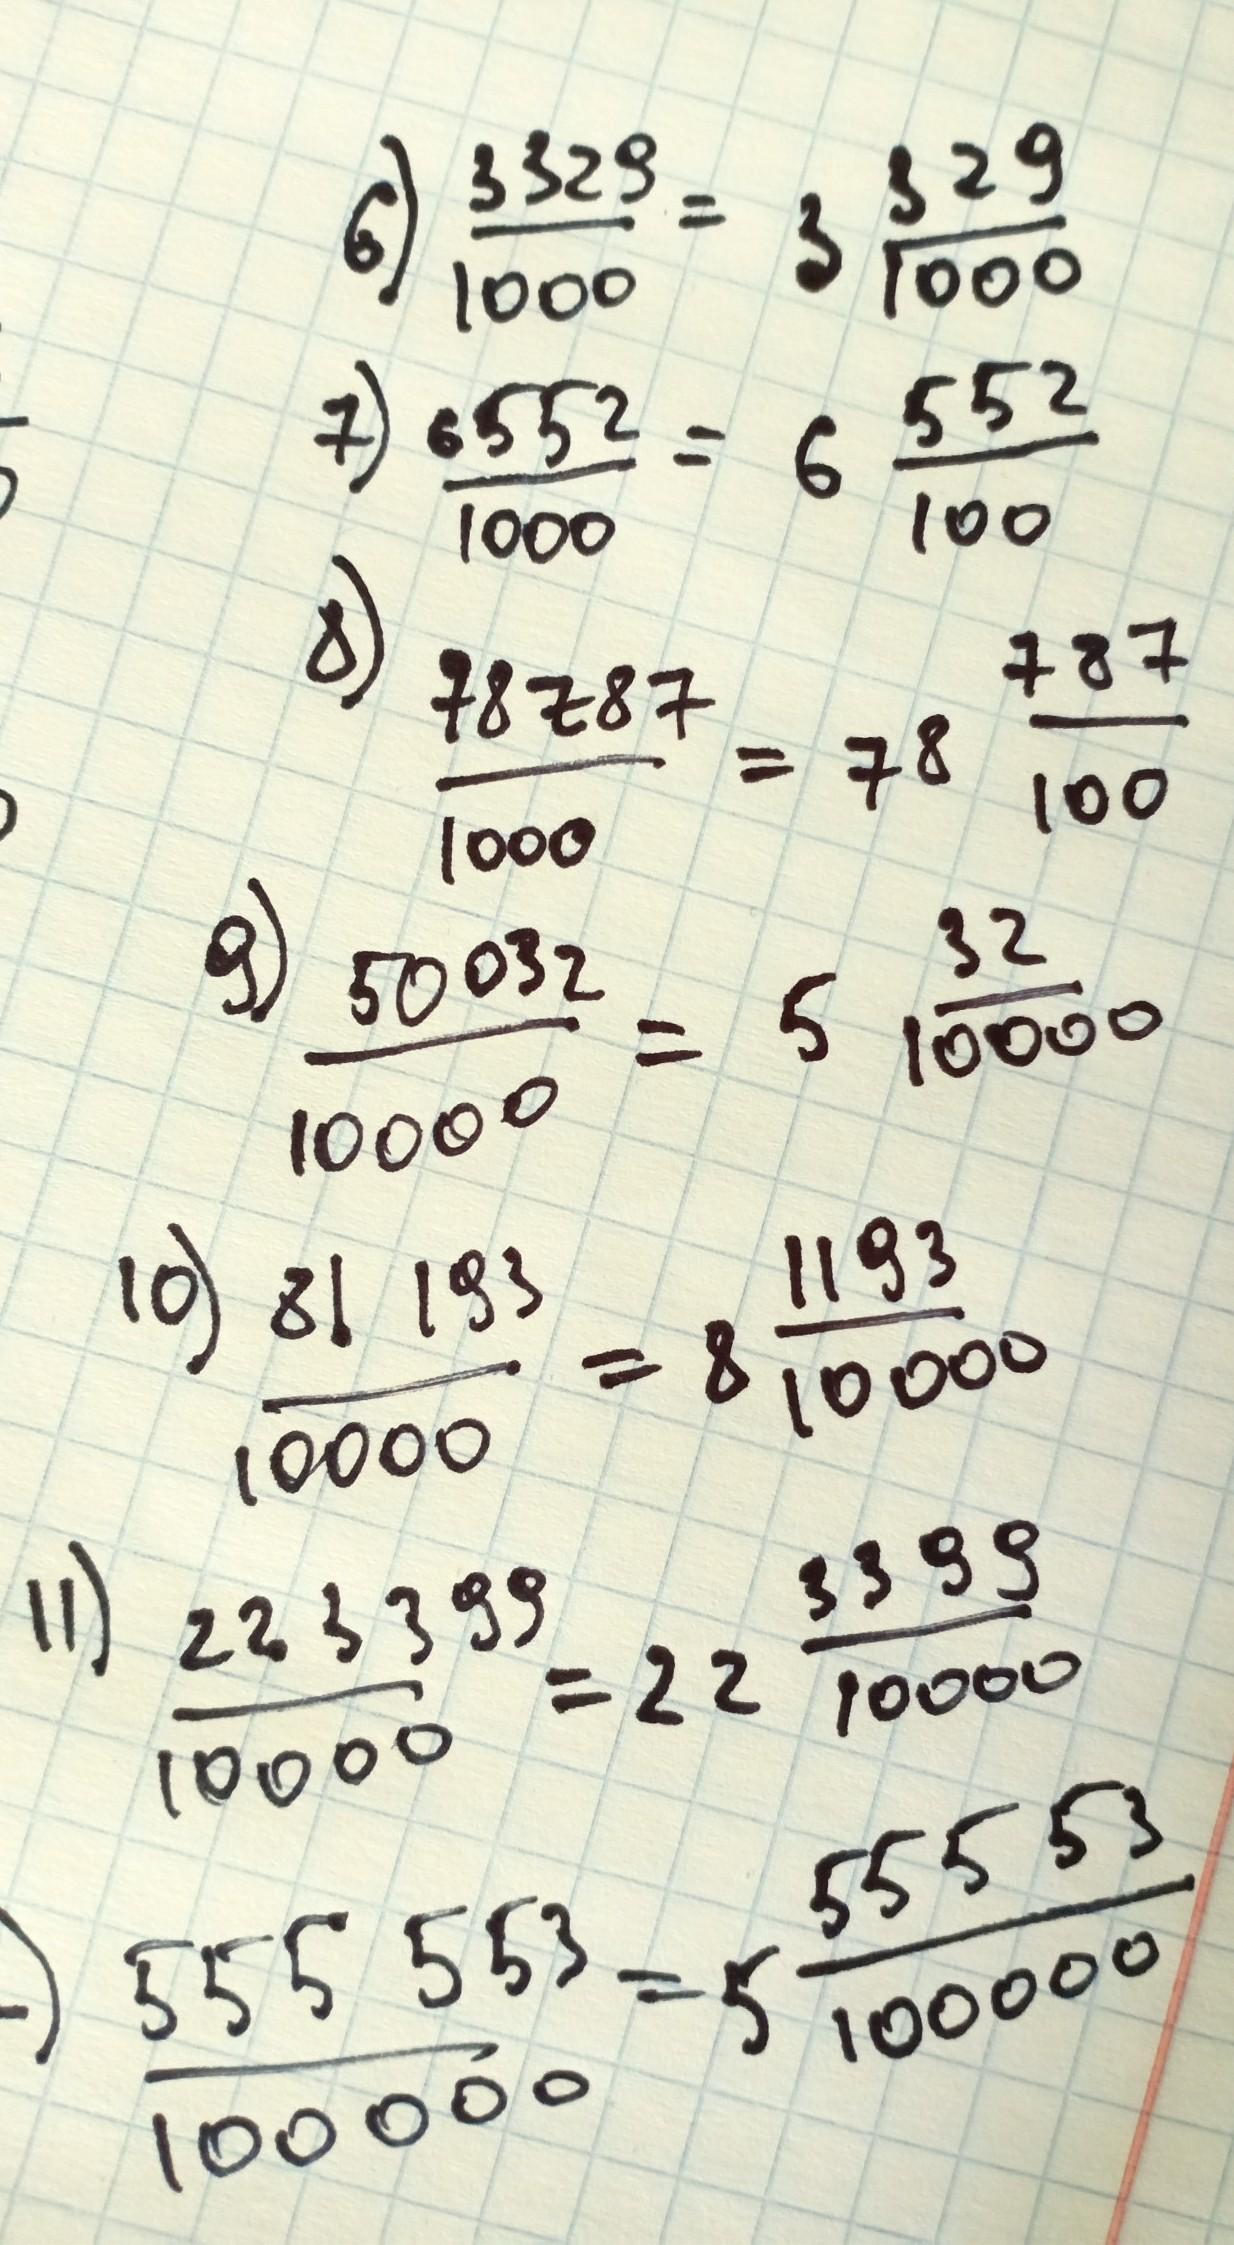 6) 3329/1000 = 3 329/1000
7) 6552/1000 = 6 552/100
8) 78787/1000 = 78 787/100
9) 50032/10000 = 5 32/10000
10) 81 193/10000 = 8 1193/10000
11) 223399/10000 = 22 3399/10000
) 555 553/100000 = 5 55553/100000